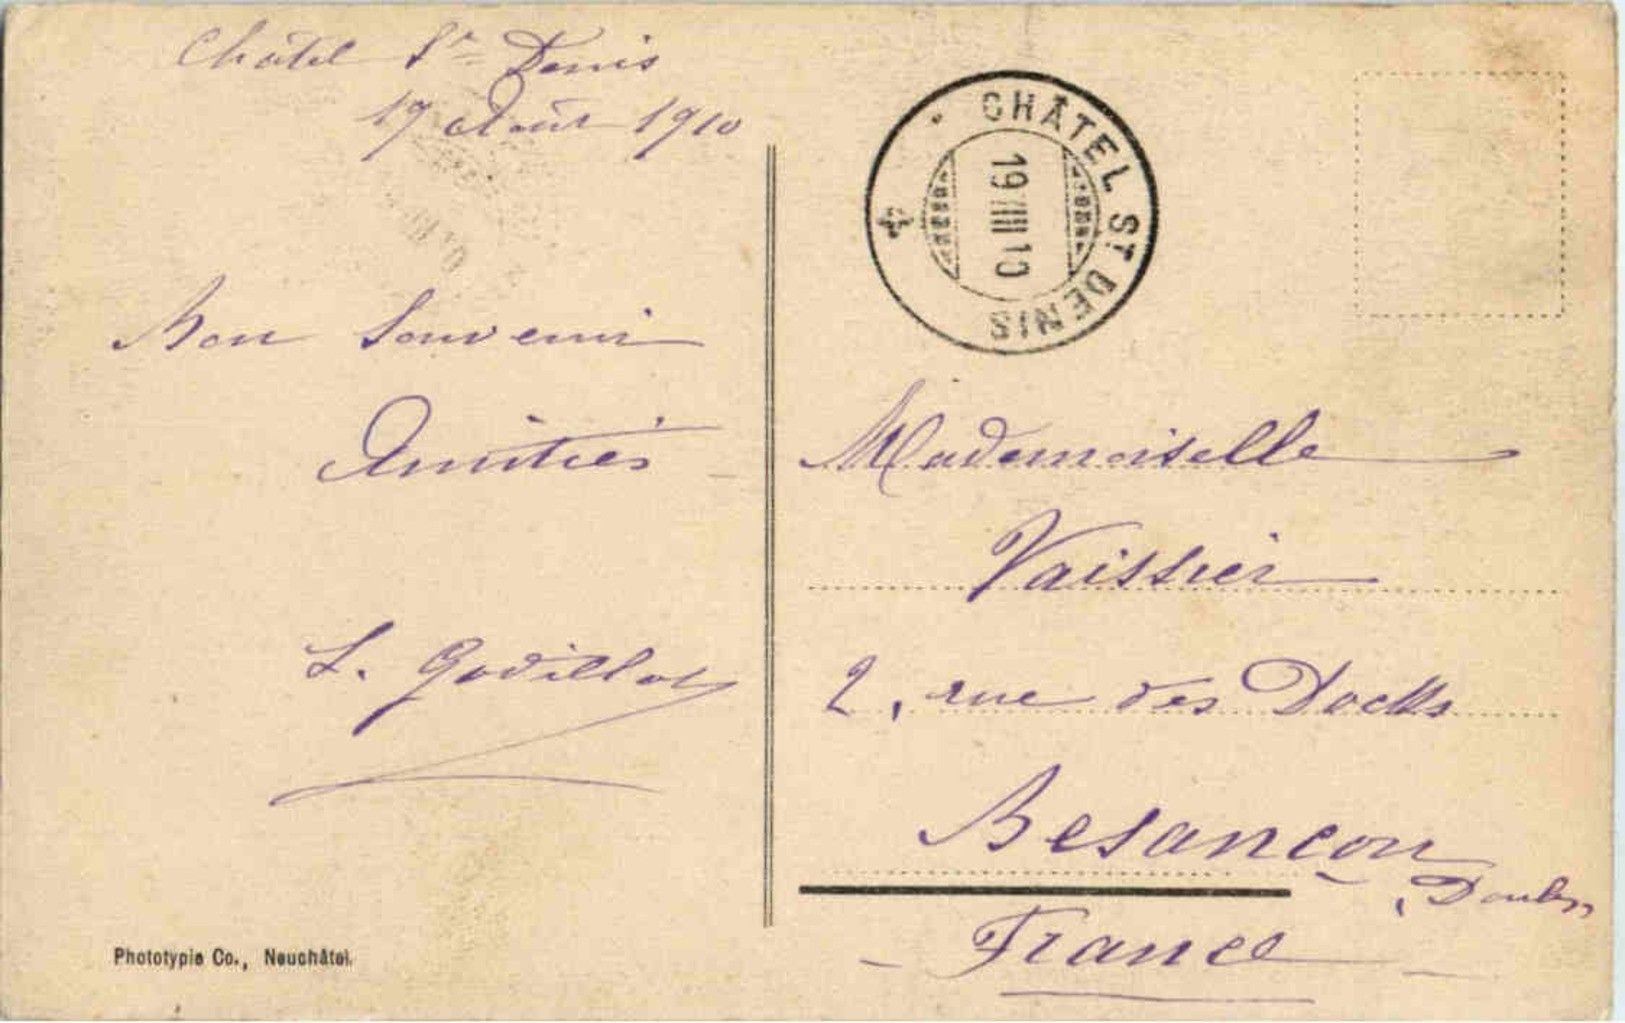 Châtel St Denis
17 Août 1910
Bon Souvenir
Amitiés
L. Godillot
Phototypie Co., Neuchâtel.
CHÂTEL ST DENIS
19 VIII 10
Mademoiselle
Vaissier
2, rue des Docks
Besançon
(Doubs)
France